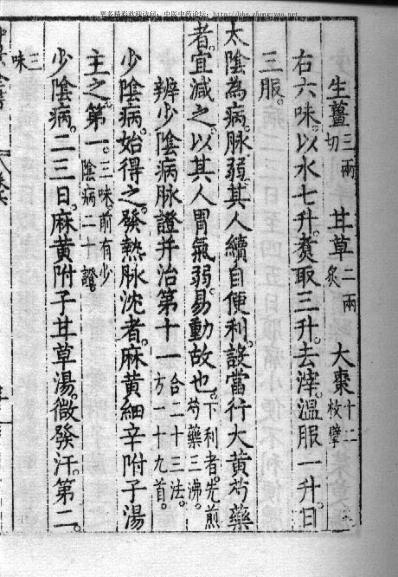 更多精彩欢迎访问：中医中药论坛：http://bbs.zhongyoo.net
生薑三兩切　甘草二兩炙　大棗十二枚擘
右六味。以水七升。煑取三升。去滓。溫服一升。日
三服。
太陰為病。脉弱。其人續自便利。設當行大黃芍藥
者。宜減之。以其人胃氣弱。易動故也。下利者。先煎芍藥三沸。
辨少陰病脉證并治第十一合二十三法。方一十九首。
少陰病。始得之。發熱脉沈者。麻黃細辛附子湯
主之。第一。三味前有少陰病二十證。
少陰病。二三日。麻黃附子甘草湯。微發汗。第二。
三味